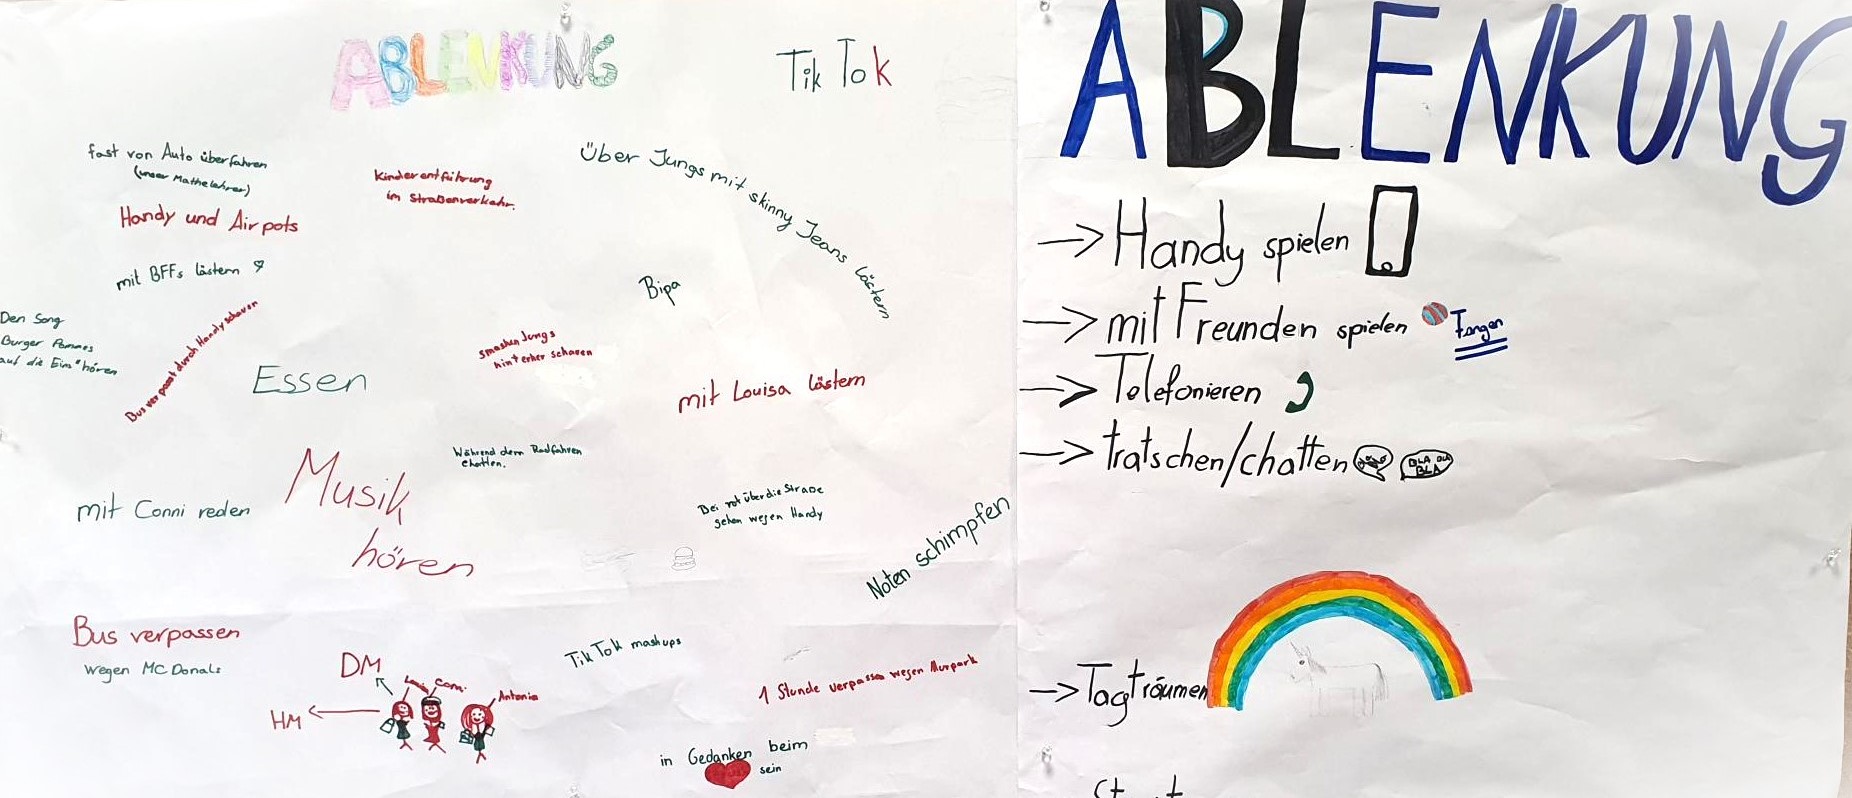 ABLENKUNG
TikTok
fast von Auto überfahren
(unser Mathelehrer)
Kinderentführung
im Straßenverkehr.
Über Jungs mit skinny Jeans lästern
Handy und Airpots
mit BFFs lästern
Bipa
Den Song
Burger Pommes
auf die Eins" hören
Bus verpasst durch Handy schauen
Essen
smashen Jungs
hinterher schauen
mit Louisa lästern
Während dem Radfahren
chatten.
Musik
hören
mit Conni reden
Bei rot über die Straße
gehen wegen Handy
Noten schimpfen
Bus verpassen
wegen MC Donals
DM
HM
Conni
Antonia
TikTok mashups
1 Stunde verpassen wegen Murpark
in Gedanken beim
sein
ABLENKUNG
→ Handy spielen
→ mit Freunden spielen
Fangen
→ Telefonieren
→ tratschen/chatten
BLA BLA
BLA
→ Tagträumen